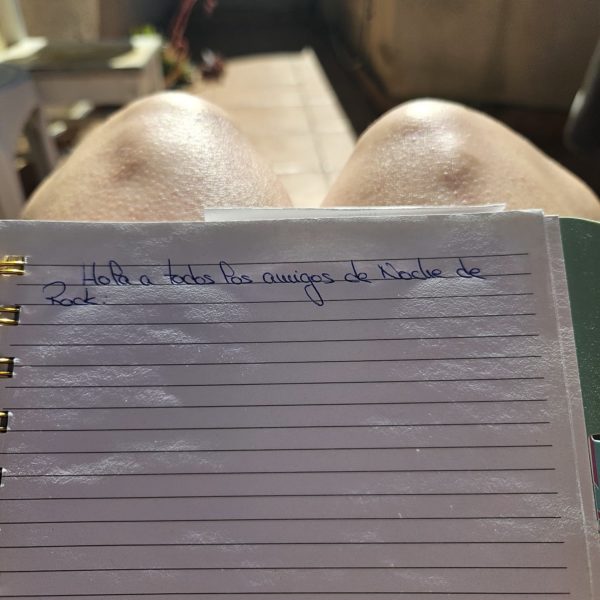 Hola a todos los amigos de Noche de
Rock.